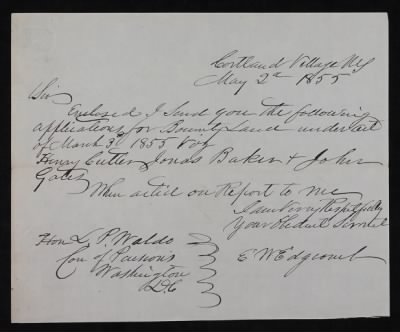 Cortland Village NY
May 2d 1855
Sir
Enclosed I Send you the following
applications for Bounty Land under act
of March 3d 1855 Viz
Henry Cutler Jonas Baker & John
Gates
When acted on Report to me
I am Very Respectfully
Your Obedient Servant
E W Edgcomb
Hon L. P. Waldo
Com of Pensions
Washington
D.C